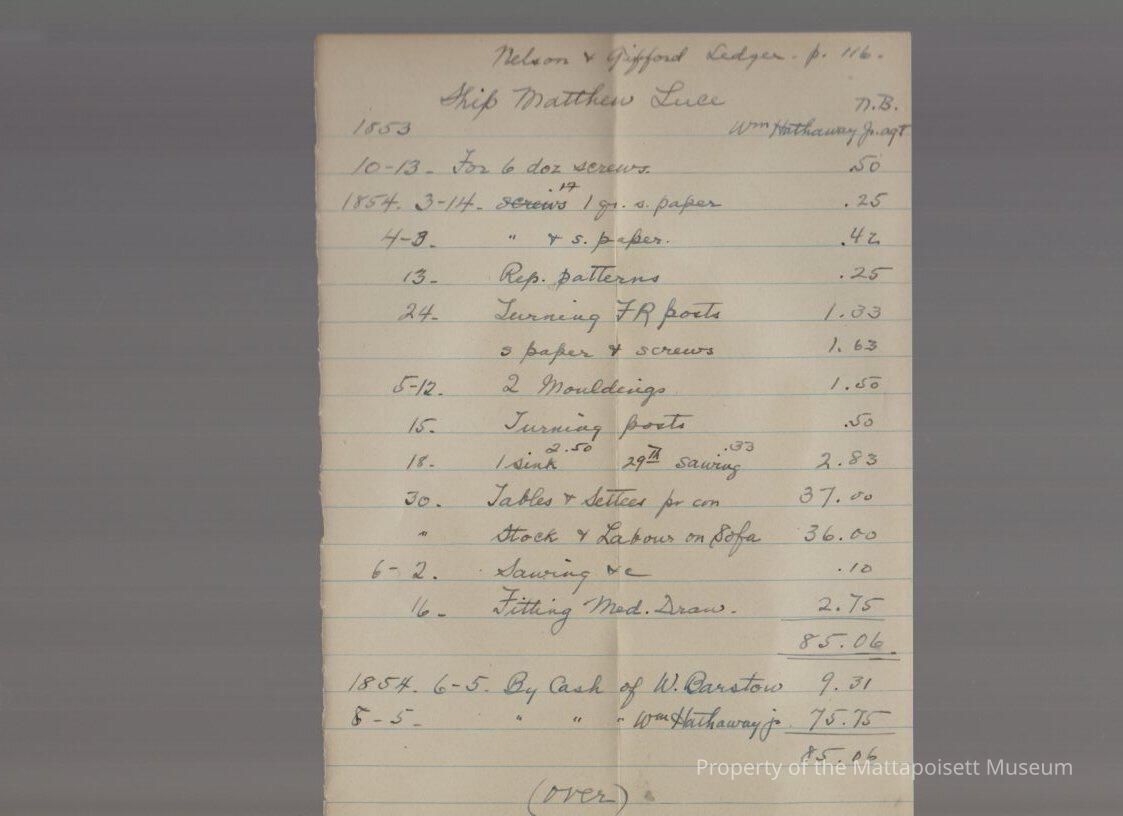 Nelson & Gifford Ledger. p. 116.
Ship Matthew Luce N.B.
1853 Wm Hathaway Jr. agt
10-13- For 6 doz screws. .50
1854. 3-14- screws .17 1 qr. s. paper .25
4-3. " & s. paper. .42
13- Rep. patterns .25
24- Turning FR posts 1.33
s paper & screws 1.63
5-12. 2 Mouldings 1.50
15. Turning posts .50
18. 1 sink 2.50 29TH sawing .33 2.83
30. Tables & Settees pr con 37.00
" Stock & Labour on Sofa 36.00
6-2. Sawing &c .10
16- Fitting Med. Draw. 2.75
85.06.
1854. 6-5. By Cash of W. Barstow 9.31
8-5- " " " Wm Hathaway jr. 75.75
85.06
(over)
Property of the Mattapoisett Museum